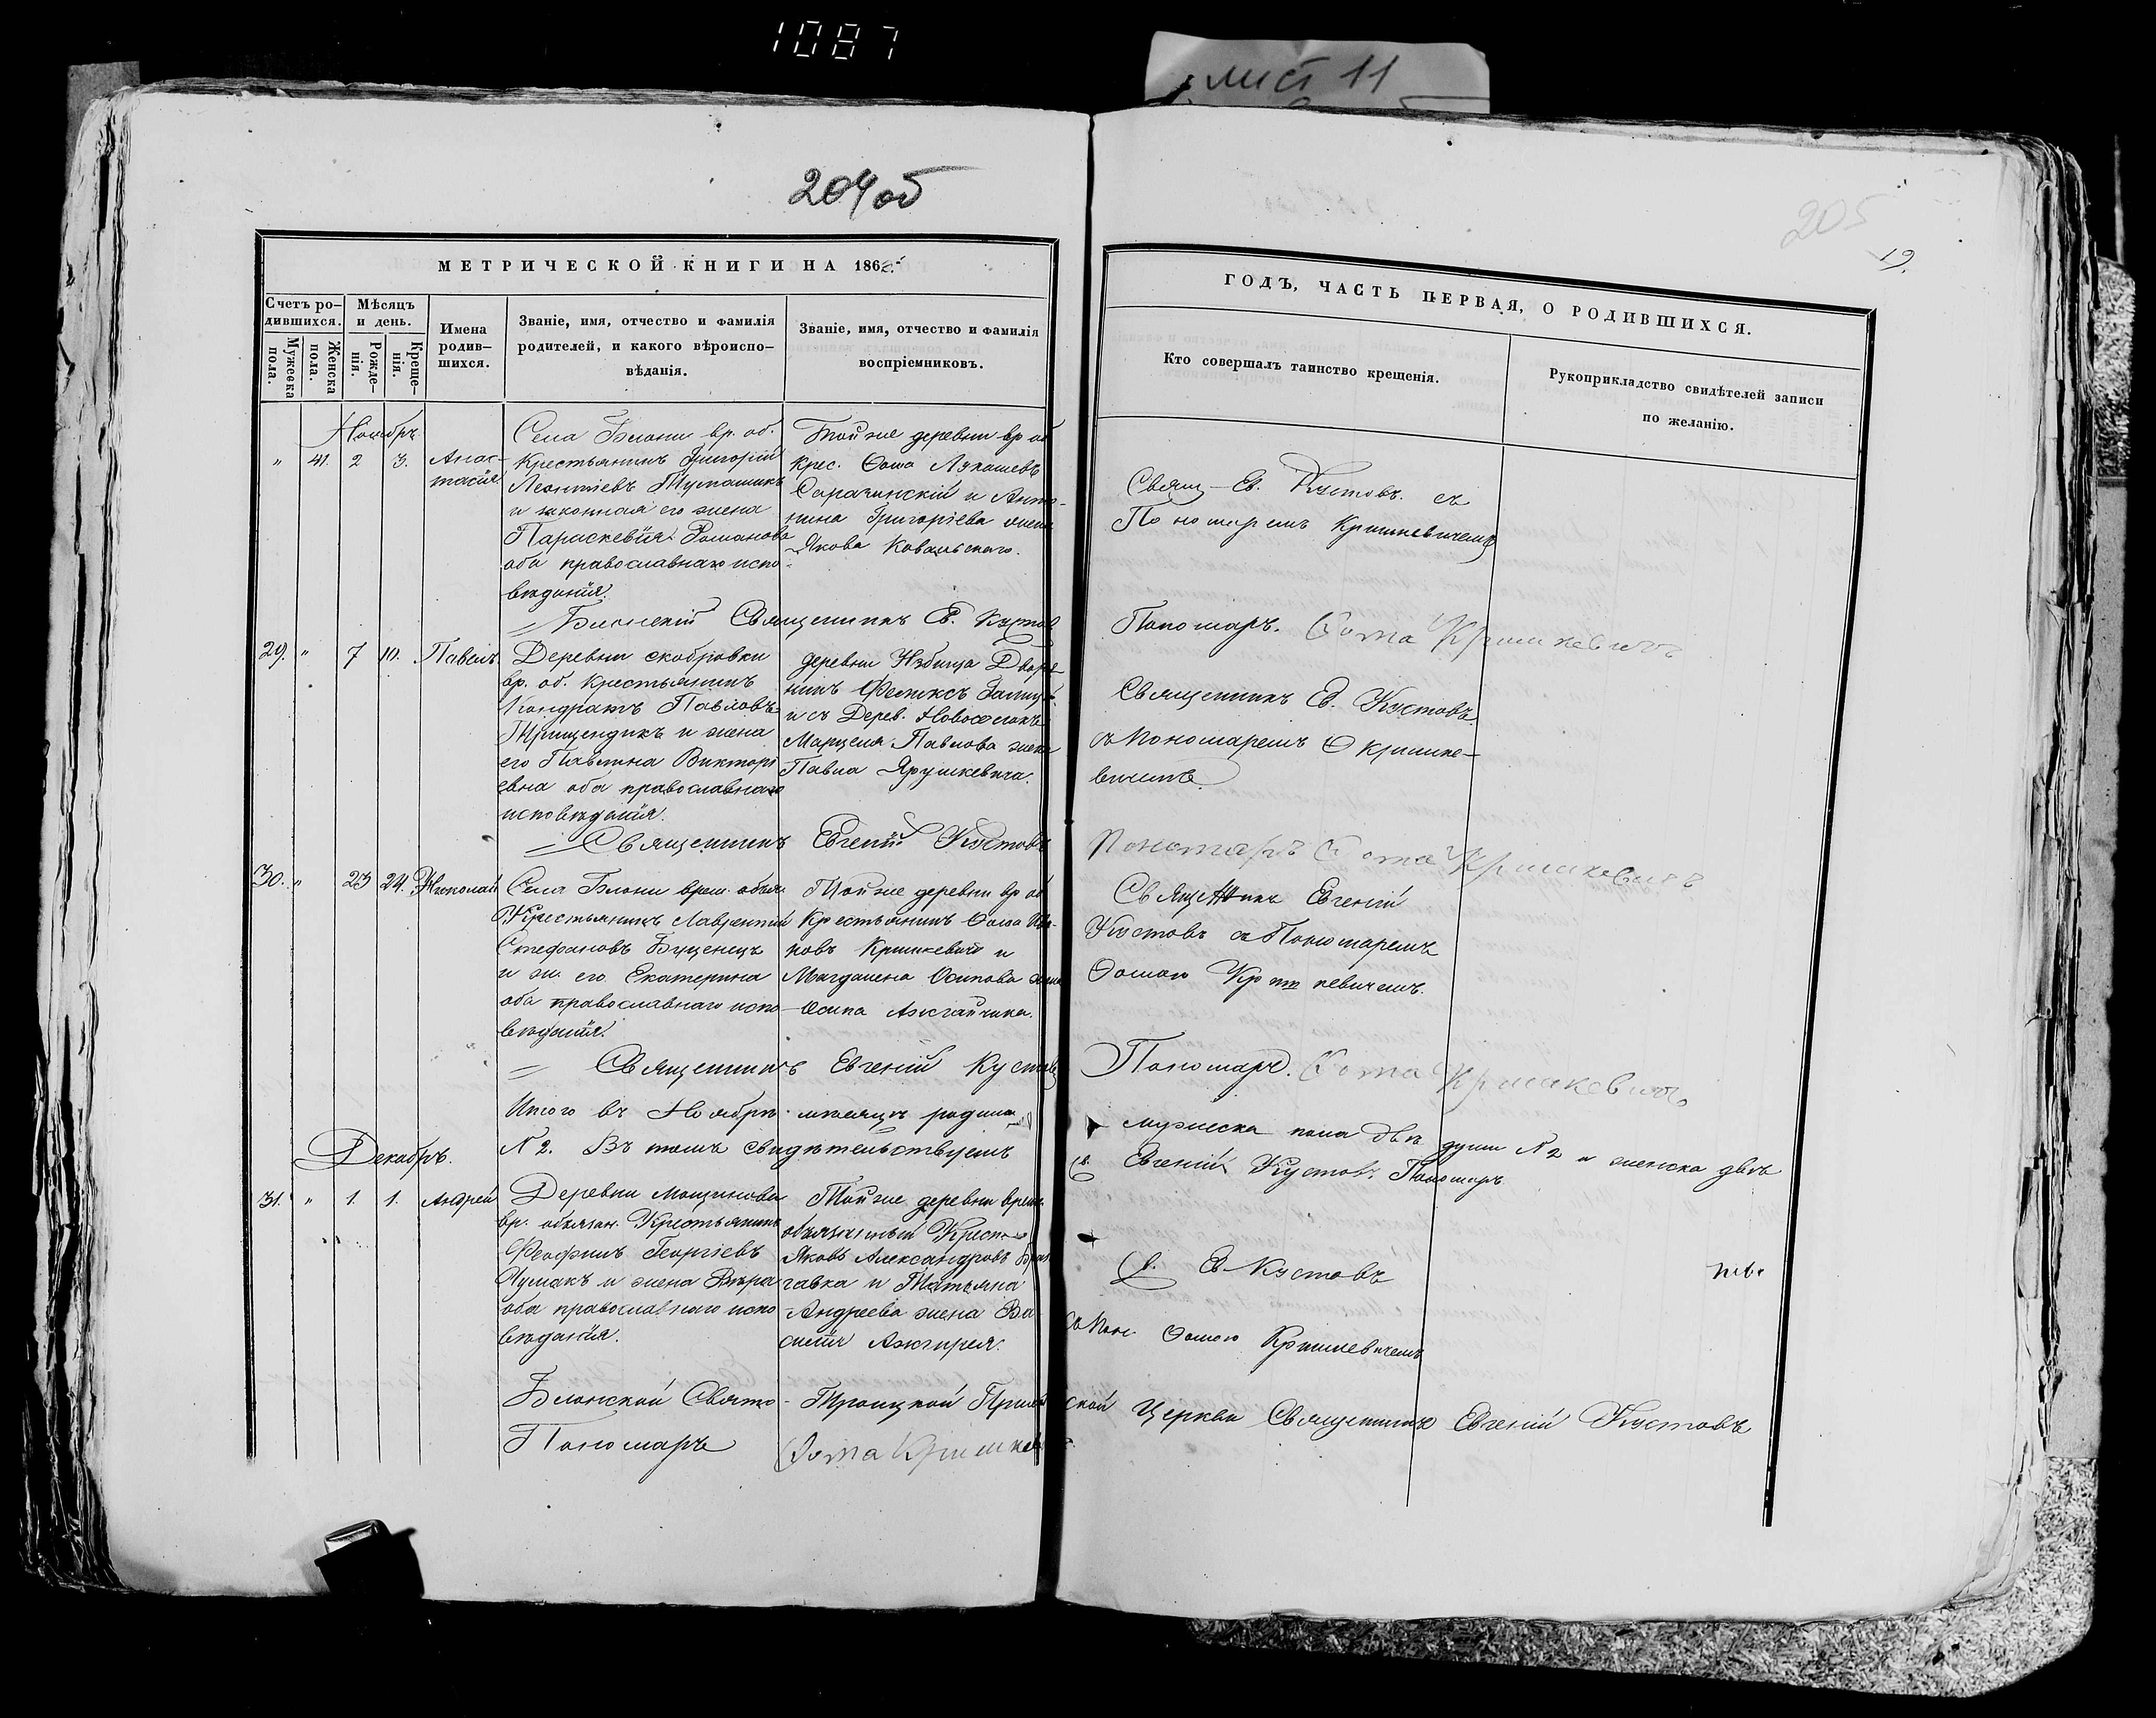 1087
лист 11
204 об
205
19.
МЕТРИЧЕСКОЙ КНИГИ НА 186
ГОДЪ, ЧАСТЬ ПЕРВАЯ, О РОДИВШИХСЯ.
Счетъ ро-
дившихся.
Мужеска
пола.
Женска
пола.
Мѣсяцъ
и день.
Рожде-
нія.
Креще-
нія.
Имена
родив-
шихся.
Званіе, имя, отчество и фамилія
родителей, и какого вѣроиспо-
вѣданія.
Званіе, имя, отчество и фамилія
воспріемниковъ.
Кто совершалъ таинство крещенія.
Рукоприкладство свидѣтелей записи
по желанію.
Ноябрь.
" 41. 2 3. Анас-
тасія
Села Блони вр. об.
Крестьянинъ Григорій
Леонтіевъ
и законная его жена
Параскевія Романова
оба православнаго испо-
вѣданія.
Той же деревни вр об
крес. Ѳома Лукашевъ
и Анто-
нина Григоріева жена
Якова Ковальскаго.
Свящ. Ев. Кустовъ. съ
Пономаремъ Кришкевичемъ
Блонскій Священникъ Ев. Кустов
Пономарь. Ѳома Кришкевичъ
29. " 7 10. Павелъ
Деревни скобровки
вр. об. Крестьянинъ
Кондратъ Павловъ
и жена
его Павлина Виктори
евна оба православнаго
исповѣданія.
деревни Избища Дворя
нинъ Феликсъ
и съ Дерев. Новоселокъ
Марцеля Павлова жена
Павла Ярушкевича.
Священникъ Ев. Кустовъ.
съ Пономаремъ Ѳ Кришке-
вичемъ.
Священникъ Евгеній Кустовъ
Пономарь Ѳома Кришкевичъ
30. " 23 24. Николай
Села Блони врем. обяз.
Крестьянинъ Лаврентій
Стефановъ
и ж. его Екатерина
оба православнаго испо-
вѣданія.
Той же деревни вр об
Крестьянинъ Ѳома Ива-
новъ Кришкевичъ и
Магдалена Осипова жена
Осипа Ажгайчика.
Священникъ Евгеній
Кустовъ съ Пономаремъ
Ѳомою Кришкевичемъ.
Священникъ Евгеній Кустовъ
Пономарь. Ѳома Кришкевичъ
Итого въ Ноябрѣ мѣсяцѣ родилось
мужеска пола двѣ души N 2 и женска двѣ
N 2. Въ томъ свидѣтельствуемъ
Св. Евгеній Кустовъ. Пономарь
Декабрь.
31. " 1. 1. Андрей
Деревни
вр. обязан. Крестьянинъ
Феофилъ Георгіевъ
Чумакъ и жена Вѣра
оба православнаго испо
вѣданія.
Той же деревни врем.
обязанный Крест.
Яковъ Александровъ
и Татьяна
Андреева жена Ва
силія Ажгирея.
С. Ев Кустовъ
съ Пон. Ѳомою Кришкевичемъ
Блонской Свято-Троицкой Приходской Церкви Священникъ Евгеній Кустовъ
Пономарь Ѳома Кришкев